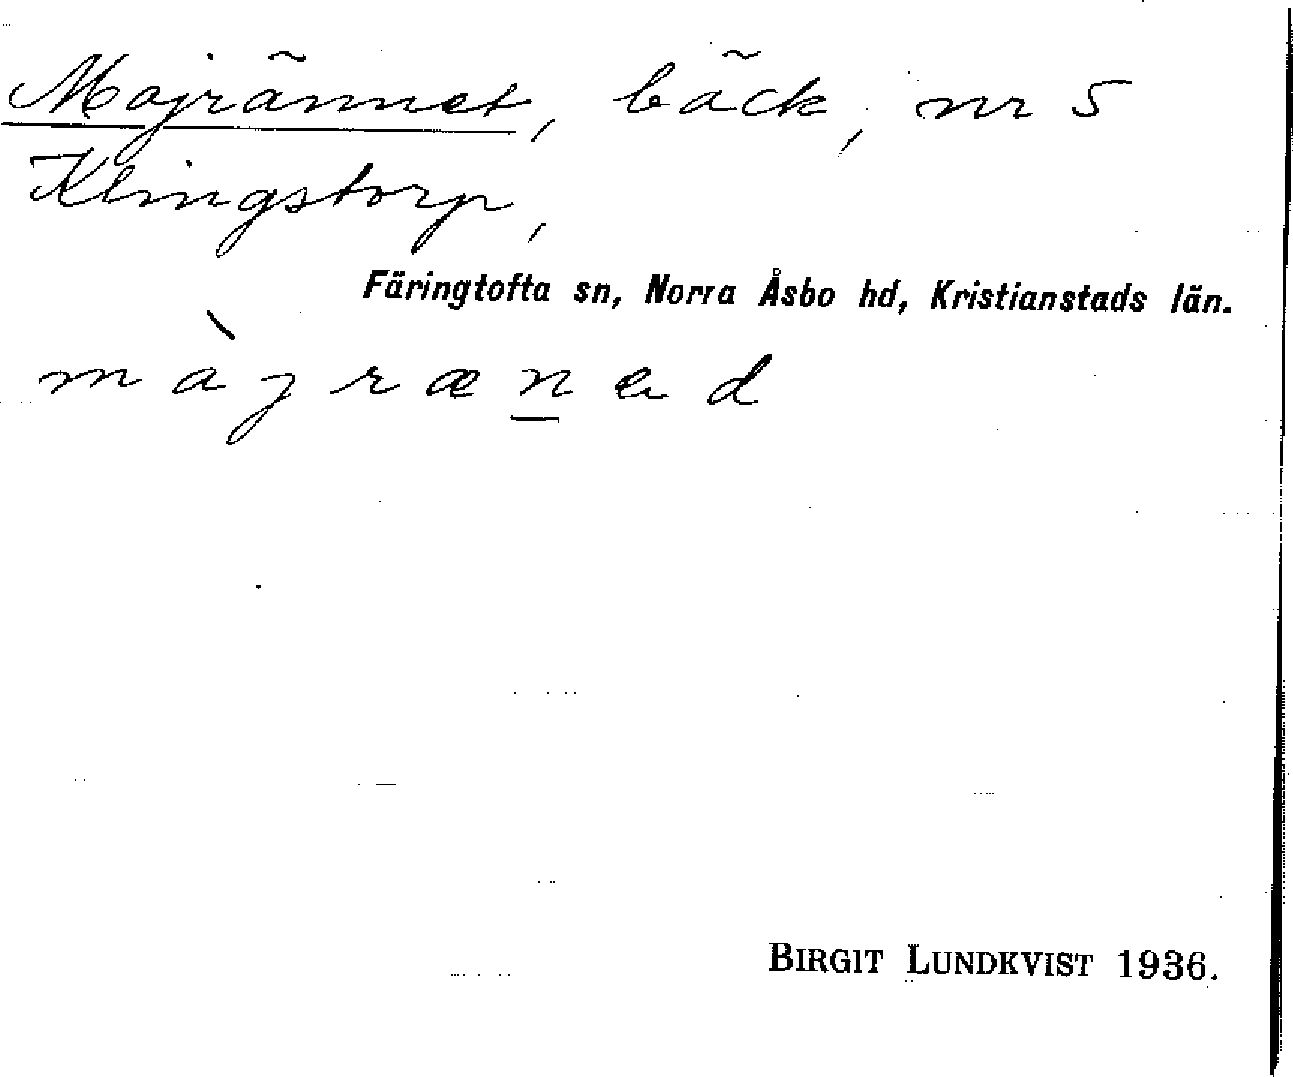 Majrännet, bäck, nr 5
Klingstorp,
Färingtofta sn, Norra Åsbo hd, Kristianstads län.
m à j r æ n e d
BIRGIT LUNDKVIST 1936.